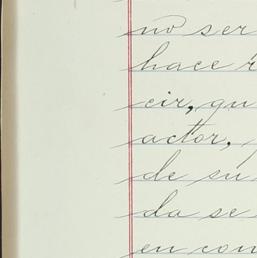 no ser
hace r
cir, qu
actor,
de su
da se
en con